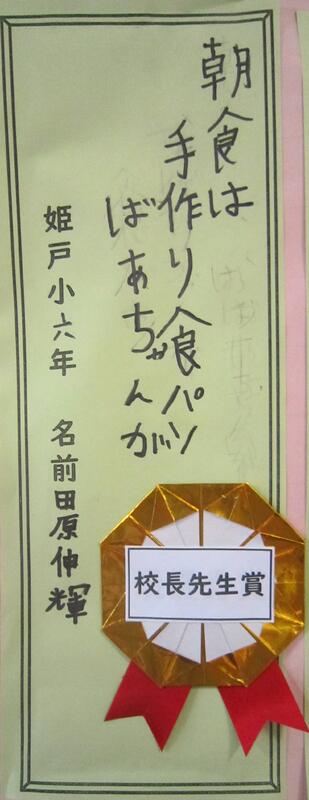 朝食は
手作り食パン
ばあちゃんが
姫戸小六年 名前田原伸輝
校長先生賞